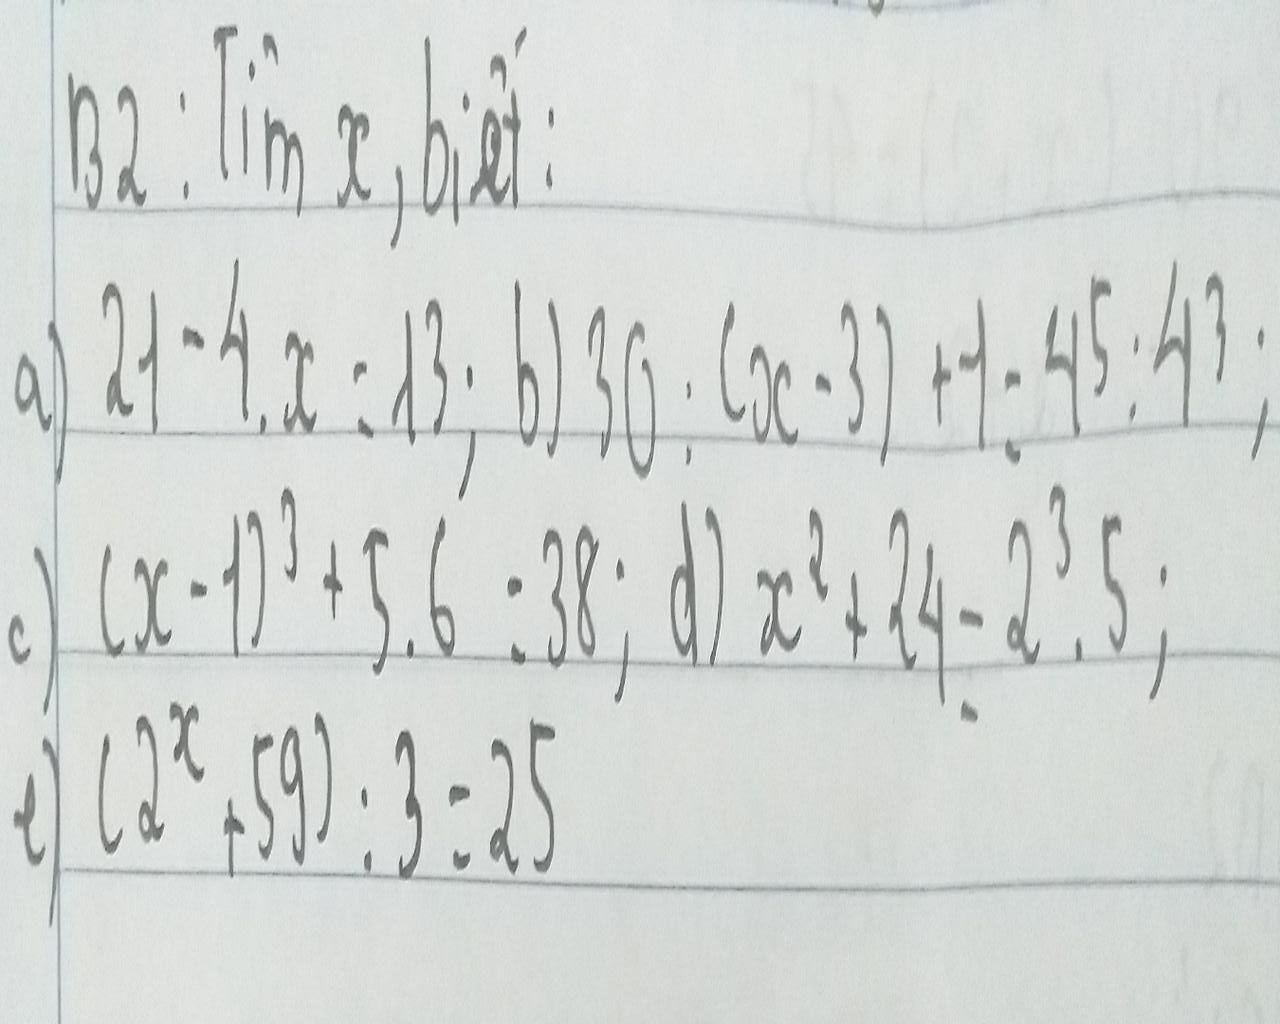 B2: Tìm x, biết:
a) 21 - 4.x = 13; b) 30 : (x - 3) + 1 = 4⁵ : 4³;
c) (x - 1)³ + 5.6 = 38; d) x² + 24 = 2³.5;
e) (2ˣ + 59) : 3 = 25